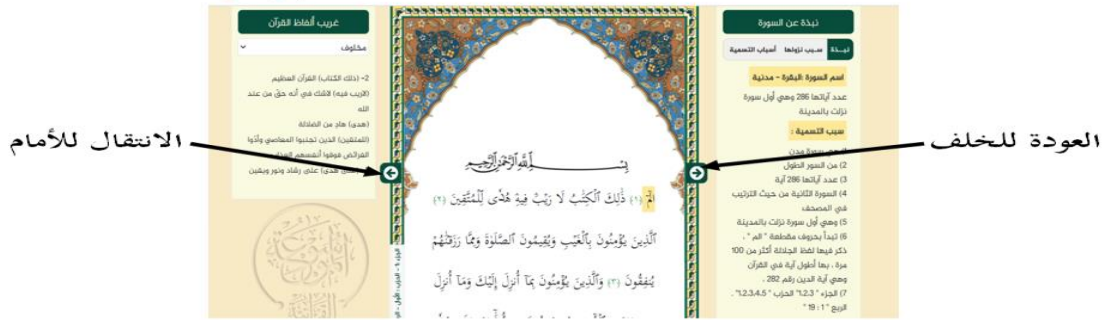 العودة للخلف
نبذة عن السورة
نبـذة سبب نزولها أسباب التسمية
اسم السورة :البقرة - مدنية
عدد آياتها 286 وهي أول سورة
نزلت بالمدينة
سبب التسمية :
سورة مدن
2) من السور الطول
3) عدد آياتها 286 آية
4) السورة الثانية من حيث الترتيب
في المصحف
5) وهي أول سورة نزلت بالمدينة
6) تبدأ بحروف مقطعة " الم " ،
ذكر فيها لفظ الجلالة أكثر من 100
مرة ، بها أطول آية في القرآن
وهي آية الدين رقم 282 .
7) الجزء " 1,2,3" الحزب " 1,2,3,4,5" .
الربع " 1 : 19 "
بِسْمِ ٱللَّهِ ٱلرَّحْمَٰنِ ٱلرَّحِيمِ
الٓمٓ (١) ذَٰلِكَ ٱلْكِتَٰبُ لَا رَيْبَ فِيهِ هُدًى لِّلْمُتَّقِينَ (٢)
ٱلَّذِينَ يُؤْمِنُونَ بِٱلْغَيْبِ وَيُقِيمُونَ ٱلصَّلَوٰةَ وَمِمَّا رَزَقْنَٰهُمْ
يُنفِقُونَ (٣) وَٱلَّذِينَ يُؤْمِنُونَ بِمَآ أُنزِلَ إِلَيْكَ وَمَآ أُنزِلَ
الجزء 1 - الحزب: الأول
غريب ألفاظ القرآن
مخلوف
2- (ذلك الكتاب) القرآن العظيم
(لاريب فيه) لاشك في أنه حقّ من عند
الله
(هدى) هادٍ من الضلالة
(للمتقين) الذين تجنبوا المعاصي وأدّوا
الفرائض فوقوا أنفسهم العذاب
هدى) على رشاد ونور ويقين
الانتقال للأمام